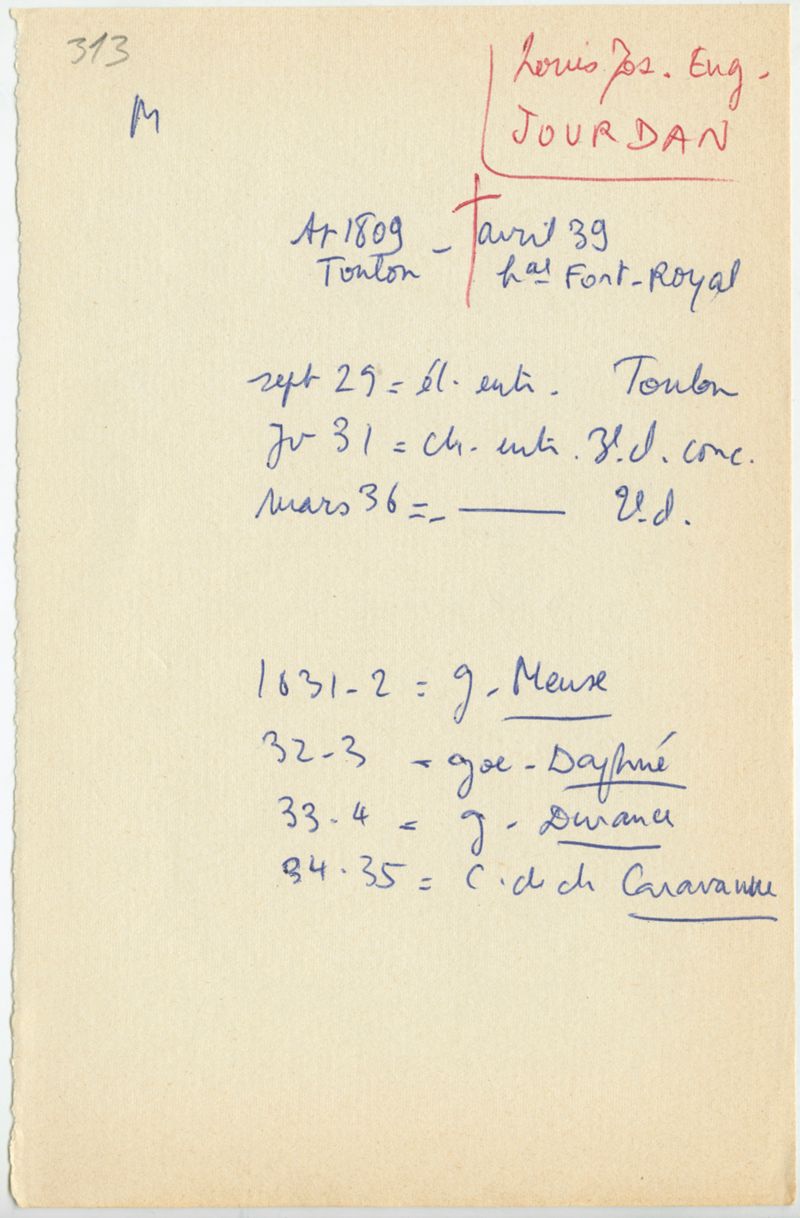 313
M
Louis Jos. Eng.
JOURDAN
At 1809 - † avril 39
Toulon hal Fort-Royal
sept 29 = él. enti. Toulon
Jv 31 = ch. enti. 3e.d. conc.
mars 36 = - —— 2e.d.
1831-2 = g - Meuse
32-3 = goe - Daphné
33-4 = g - Durance
34-35 = C. de ch Caravanne